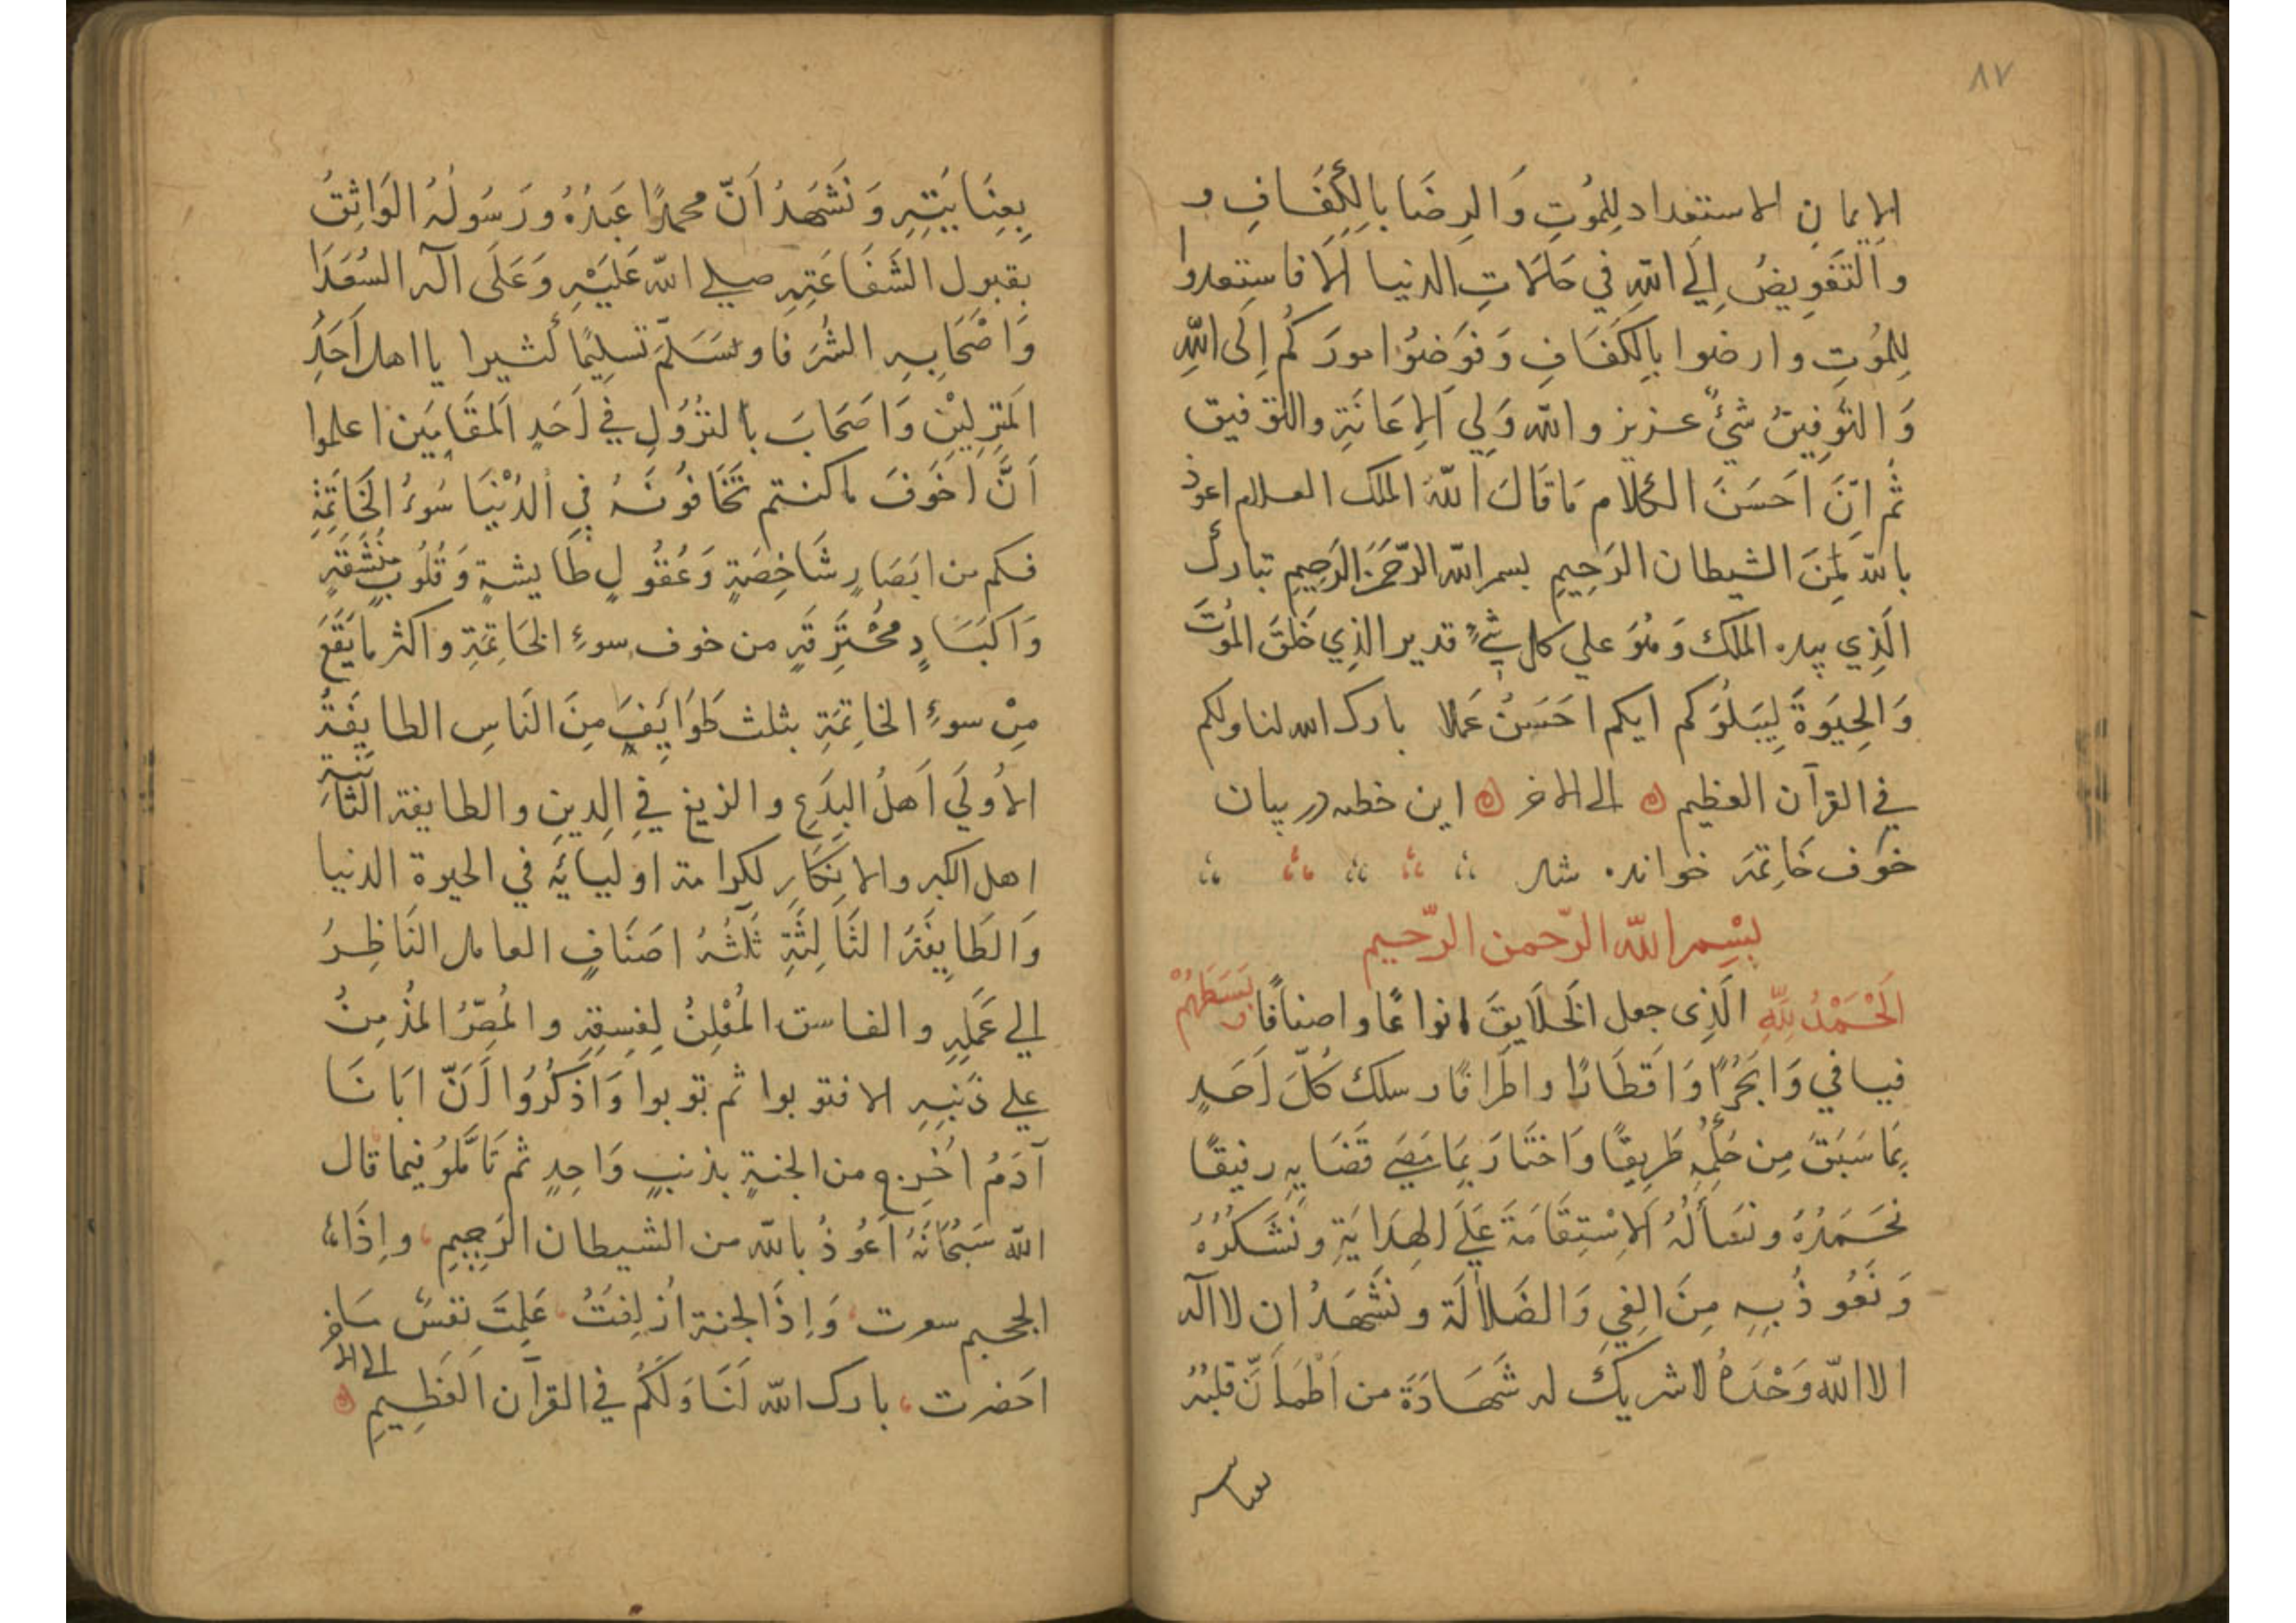 ۸۷
الاِيمان الاستعداد لِلمُوتِ وَالرِضَا بِالكَفَافِ و
وَالتَفوِيضُ اِلَي اللهِ فِي حَالَاتِ الدنيا اَلَا فاستعدوا
لِلمُوتِ وارضوا بِالكَفَافِ وَفوَضوُا امورَكُم اِلَى اللهِ
وَالتَوفِيقُ شَيءٌ عزيز والله وَلِي الاِعَانَةِ والتوفيق
ثُم اِنَّ اَحسَنَ الكَلام مَا قَالَ اللهُ الملك العلام اعوذ
بالله مِنَ الشيطان الرَجِيمِ بسم الله الرَّحمَنِ الرَحِيمِ تبارك
الَذِي بيده الملك وَهُوَ علي كل شيءٍ قدير الذِي خَلَقَ المُوتَ
وَالحِيَوةَ لِيَبلُوَكم ايكم اَحسَنُ عَمَلا بارك الله لنا ولكم
في القرآن العظيم ه الى الاخر ه اين خطبه در بيان
خوَف خَاتِمَه خوانده شد
بِسْمِ الله الرّحمن الرّحيم
اَلحَمْدُ لِلّهِ الَذِى جعل الخَلَايِقَ انواعًا واصنافًا وبَسَطَهُمْ
فيافي وَابحُرًا وَاقطَارًا واطرَافًا وسلك كُلَّ اَحَدٍ
بِمَا سَبَقَ مِن حُكمِهِ طَرِيقًا وَاختَارَ بِمَا مَضَي قَضَايهِ رفيقًا
نَحمَدُهُ ونسأَلُهُ الاِسْتِقَامَةَ عَلَي الهِدَايَةِ ونَشكُرُهُ
وَنَعُوذُ بِهِ مِنَ الغِي وَالضَلالَة ونَشهَدُ ان لا اله
الا الله وَحْدَهُ لا شريكَ له شَهَادَةَ من اَطمَأنَّ قلبُهُ
بعنايته
بِعِنَايَتِهِ وَنَشهَدُ اَنّ محمدًا عَبدُهُ ورَسُولُهُ الوَاثِقُ
بِقبوَلِ الشَفَاعَتِهِ صلي الله عَلَيْهِ وَعَلَى آله السُعَدَا
وَاَصْحَابِهِ الشُرَفا وسَلَّمَ تَسلِيمًا كَثيرا يا اهل اَحَدِ
المَنزِلَينِ وَاَصحَابَ بالنزُولِ فِي اَحَدِ اَلمقَامَين اعلموا
اَنَّ اَخوَفَ ما كنتم تَخَافُونَهُ فِي الدُنْيَا سُوءُ الخَاتِمَةِ
فكم من ابَصَارٍ شَاخِصَةٍ وَعُقُولٍ طَايشةٍ وَقُلُوبٍ مُنشَقَةٍ
وَاَكبَادٍ مُحْتَرِقَةٍ من خوف سوءِ الخَاتِمَةِ واكثر ما يَقَعَ
مِنْ سوءِ الخاتِمَةِ بثلث طَوَايِفَ مِنَ النَاسِ الطايِفَةُ
الاُولَي اَهلُ البِدَعِ والزيغ فِي الدِينِ والطايفة الثَانَيَةِ
اهل الكبر والاِنكَارِ لكرامة اوليَائِه في الحيوة الدنيا
وَالطَايِفَةُ الثَالِثَةِ ثَلَثَةُ اَصنَافٍ العامل النَاظِرُ
اِلي عَمَلِهِ والفاسق المُعْلِنُ لِفِسقِهِ والمُصِرُّ المُذْمِنُ
علي ذَنبِهِ الا فتوبوا ثم توبوا وَاَذكُرُوا اَنَّ ابَانَا
آدَمُ اُخرِج من الجنةِ بذنبٍ وَاحِدٍ ثم تَأَمَّلوُ فيما قال
الله سُبحَانَهُ اَعُوذُ بالله من الشيطان الرَجِيمِ واِذَا
الجحيم سعرت وَاِذَا لجنة اُزلِفَتُ عَلِمَتَ نفسٌ مَا
احَضرت بارك الله لَنَا وَلَكُم في القرآن العَظِيمِ الى الاخر ه